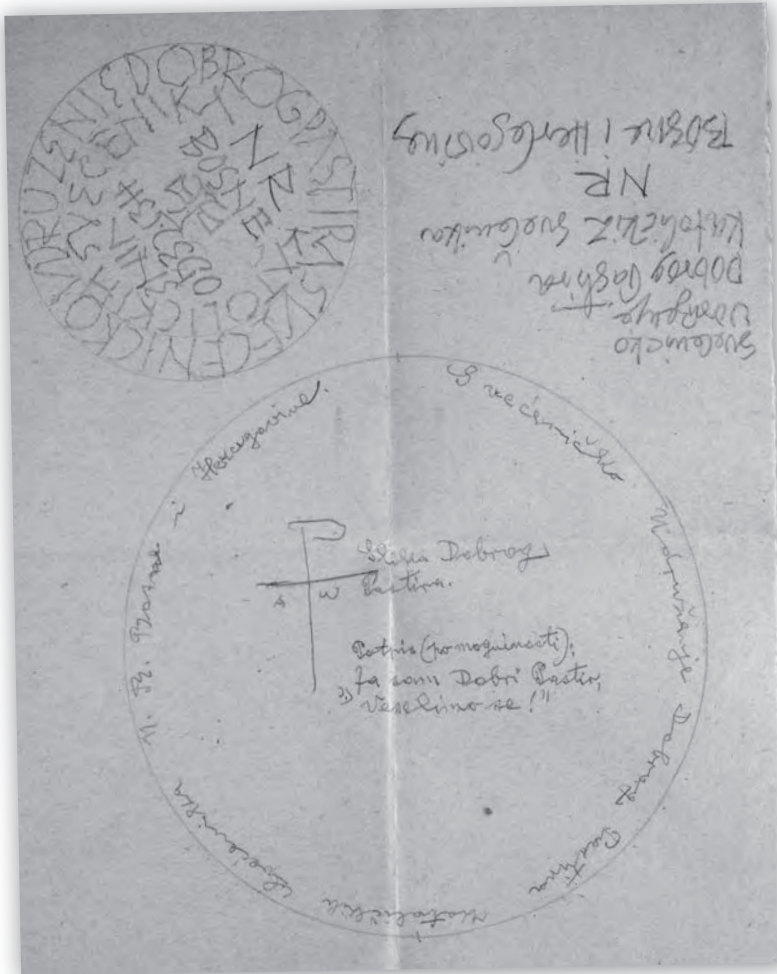 SVECENICKO UDRUZENIE DOBROG PASTIRA
NR
Svećeničko
Udruženje
Dobrog Pastira
Katoličkih Svećenika
NR
Bosne i Hercegovine
Svećeničko Udruženje Dobrog Pastira Katoličkih Svećenika N. R. Bosne i Hercegovine.
P
A W
Slika Dobrog
Pastira.
(po mogućnosti):
„Ja sam Dobri Pastir,
veselimo se!"